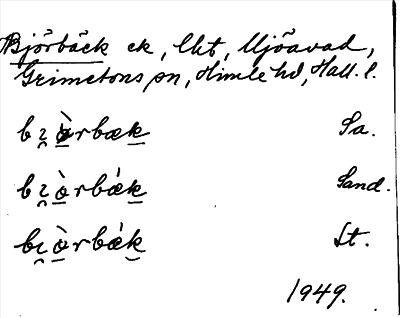 Björbäck ek, lht, Mjöavad,
Grimetons sn, Himle hd, Hall. l.
bɩ̯ò̱rbæk̲ Sa.
bɩ̯ò̱rbǽk̲ Sand.
bɩ̯ò̱rbǽk̲ St.
1949.